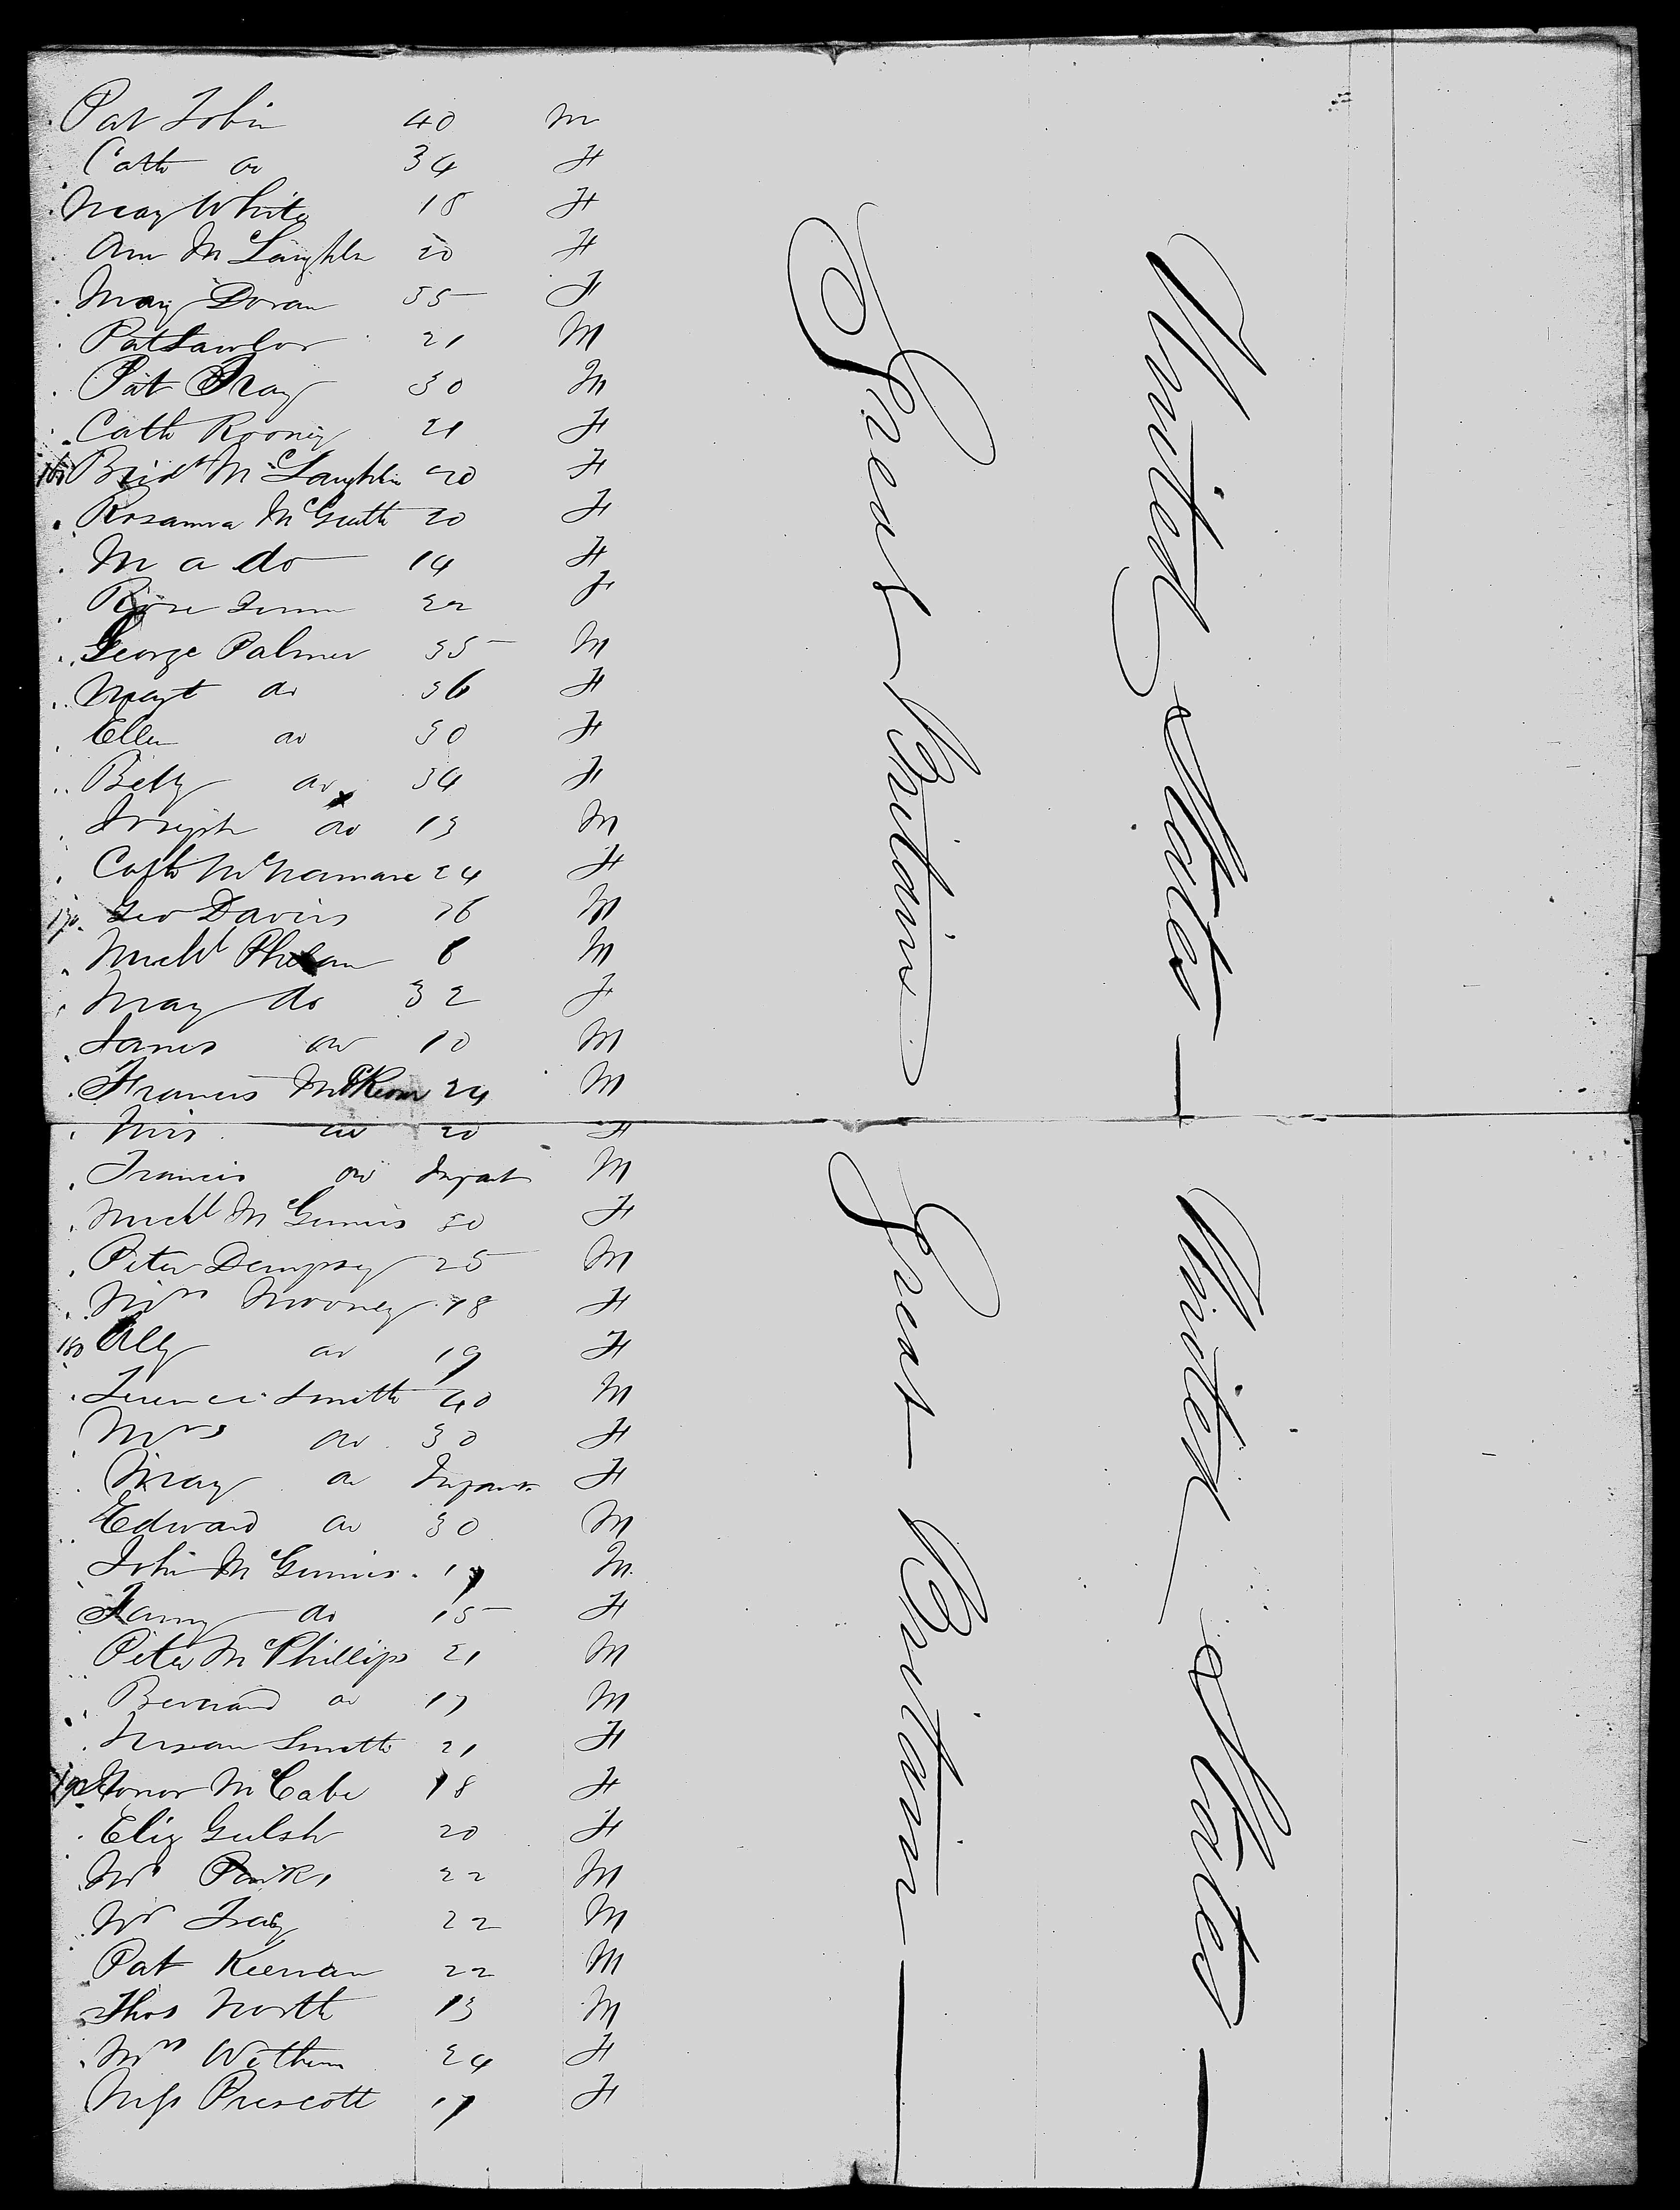 Pat Tobin 40 M
Cath do 34 F
Mary White 18 F
Ann McLaughln 20 F
Mary Doran 35 F
Pat Lawlor 21 M
Pat Gray 30 M
Cath Rooney 21 F
160 Bridt McLaughlin 20 F
Rosanna McGrath 20 F
M a do 14 F
Rose Quinn 22 F
George Palmer 35 M
Margt do 36 F
Ellen do 30 F
Betty do 34 F
Joseph do 13 M
Cath McNamara 24 F
170 Geo Davis 26 M
Michl Phelan 6 M
Mary do 32 F
James do 10 M
Francis McKeon 24 M
Mrs do 20 F
Francis do Infant M
Michl McGinnis 30 F
Peter Dempsey 25 M
Mrs Mooney 18 F
180 Ally do 19 F
Terence Smith 40 M
Mrs do 30 F
Mary do Infant F
Edward do 30 M
John McGinnis 17 M
Fanny do 15 F
Peter McPhillips 21 M
Bernard do 17 M
Susan Smith 21 F
190 Honor McCabe 18 F
Eliz 20 F
Mr Parks 22 M
Mr 22 M
Pat Keenan 22 M
Thos North 13 M
Mrs 24 F
Miss Prescott 17 F
Great Britain
United States
Great Britain
United States